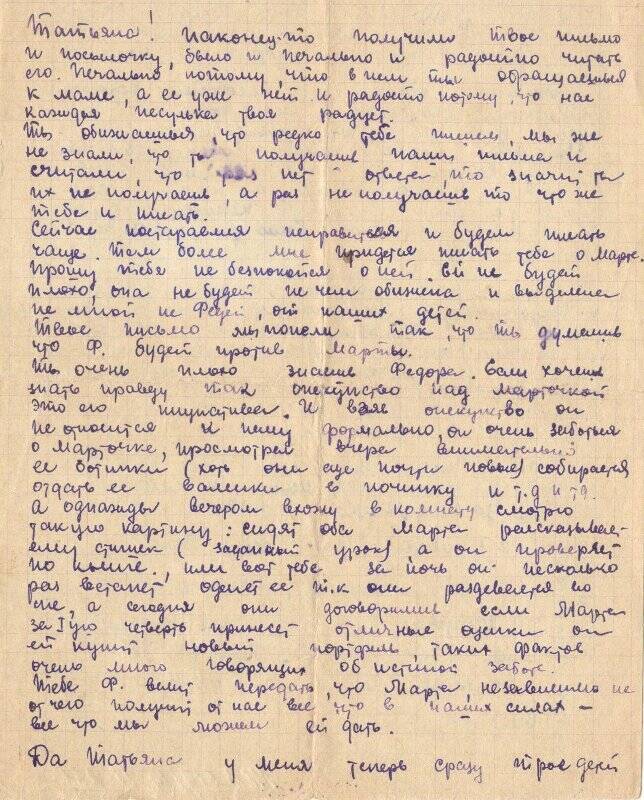 Татьяна! Наконец-то получили твое письмо
и посылочку, было и печально и радостно читать
его. Печально потому, что в нем ты обращаешься
к маме, а ее уже нет и радостно потому, что нас
каждая весулька твоя радует.
Ты обижаешься, что редко тебе пишем, мы же
не знали, что ты получаешь наши письма и
считали, что раз нет ответа, то значит ты
их не получаешь, а раз не получаешь то что же
тебе и писать.
Сейчас постараемся исправиться и будем писать
чаще. Тем более мне придется писать тебе о Марте.
Прошу тебя не безпокойся о ней. Ей не будет
плохо, она не будет не чем обижена и выделена
не мной не Федей, от наших детей.
Твое письмо мы поняли так, что ты думаешь
что Ф. будет против Марты.
Ты очень плохо знаешь Федора. Если хочешь
знать правду так опекунство над Марточкой
это его инициатива. И взяв опекунство он
не относится к нему формально, он очень заботься
о Марточке, просмотрел вчера внимательно
ее ботинки (хоть они еще почти новые) собирается
отдать ее валенки в починку и т.д и тд.
а однажды вечером вхожу в комнату смотрю
такую картину: сидят оба Марта рассказывает
ему стишек (заданный урок) а он проверяет
по книге, или вот тебе за ночь он несколько
раз встанет оденет ее т.к она раздевается во
сне, а сегодня они договорились если Марта
за Iую четверть принесет отличные оценки он
ей купит новый портфель, таких фактов
очень много говорящих об истиной заботе.
Тебе Ф. велит передать, что Марта, независимо не
от чего получит от нас все что в наших силах –
все что мы можем ей дать.
Да Татьяна у меня теперь сразу трое детей